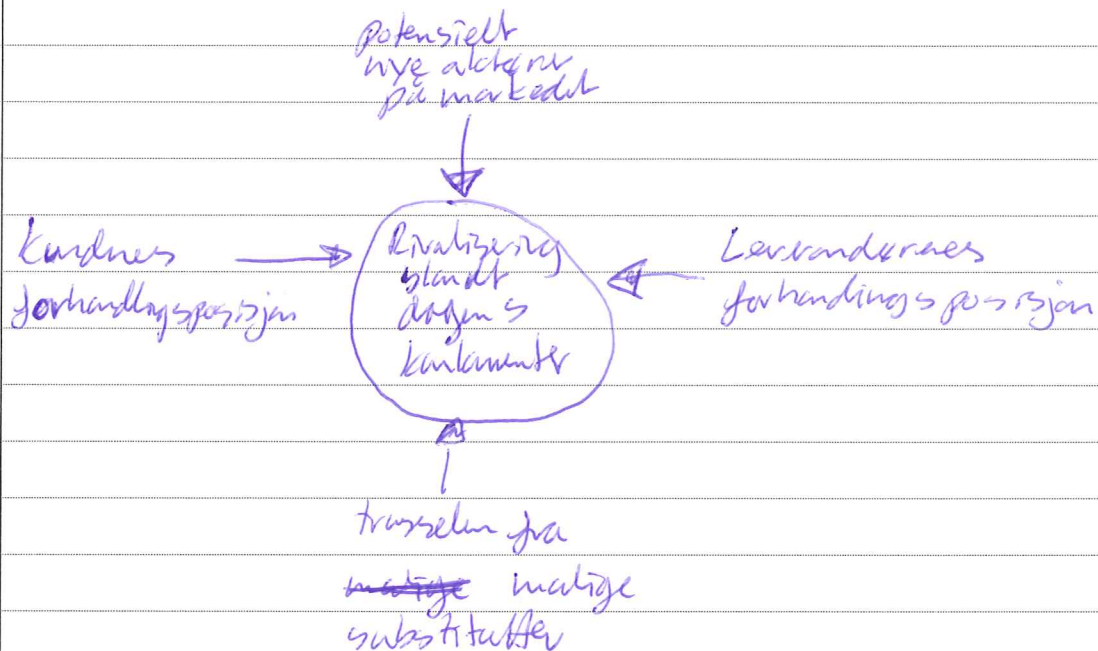 potensielt
nye aktører
på markedet
Kundenes
forhandlingsposisjon
Rivalisering
blandt
dagens
konkurrenter
Leverandørenes
forhandlingsposisjon
trusselen fra
mulige
substitutter